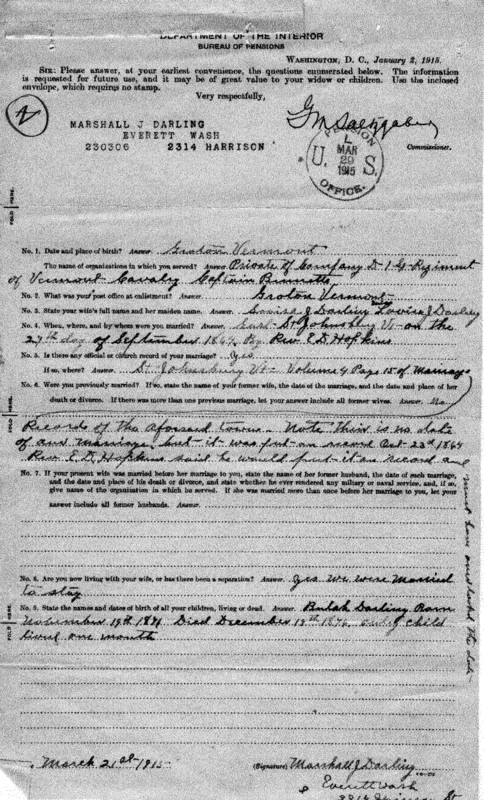 DEPARTMENT OF THE INTERIOR
BUREAU OF PENSIONS
WASHINGTON, D. C., January 2, 1915.
SIR: Please answer, at your earliest convenience, the questions enumerated below. The information
is requested for future use, and it may be of great value to your widow or children. Use the inclosed
envelope, which requires no stamp.
Very respectfully,
MARSHALL J DARLING
EVERETT WASH
230306 2314 HARRISON
Commissioner.
PENSION
MAR
U. 29 S.
1915
OFFICE.
FOLD HERE.
No. 1. Date and place of birth? Answer. Groton Vermont
The name of organizations in which you served? Answer. Private of Company D 1 Regiment
of Vermont Cavalry Captain
No. 2. What was your post office at enlistment? Answer. Groton Vermont
No. 3. State your wife's full name and her maiden name. Answer. Darling Darling
No. 4. When, where, and by whom were you married? Answer. East St Johnsbury Vt on the
27th day of September 1864 By Rev. E. D. Hopkins
No. 5. Is there any official or church record of your marriage? Yes
If so, where? St Johnsbury Vt - Volume 4 Page 15 of Marriage
No. 6. Were you previously married? If so, state the name of your former wife, the date of the marriage, and the date and place of her
death or divorce. If there was more than one previous marriage, let your answer include all former wives. Answer. No
Record of the aforesaid town. Note their is no date
of our marriage but it was put on record Oct 23d 1864
Rev E. D. Hopkins said he would put it on record and
must have
No. 7. If your present wife was married before her marriage to you, state the name of her former husband, the date of such marriage,
and the date and place of his death or divorce, and state whether he ever rendered any military or naval service, and, if so,
give name of the organization in which he served. If she was married more than once before her marriage to you, let your
answer include all former husbands. Answer.
No. 8. Are you now living with your wife, or has there been a separation? Answer. Yes we were married
to stay
FOLD HERE.
No. 9. State the names and dates of birth of all your children, living or dead. Answer. Darling Born
November 19th Died December 19th 1876 only child
lived one month
March 21st 1915
(Signature) Marshall J Darling
Everett Wash